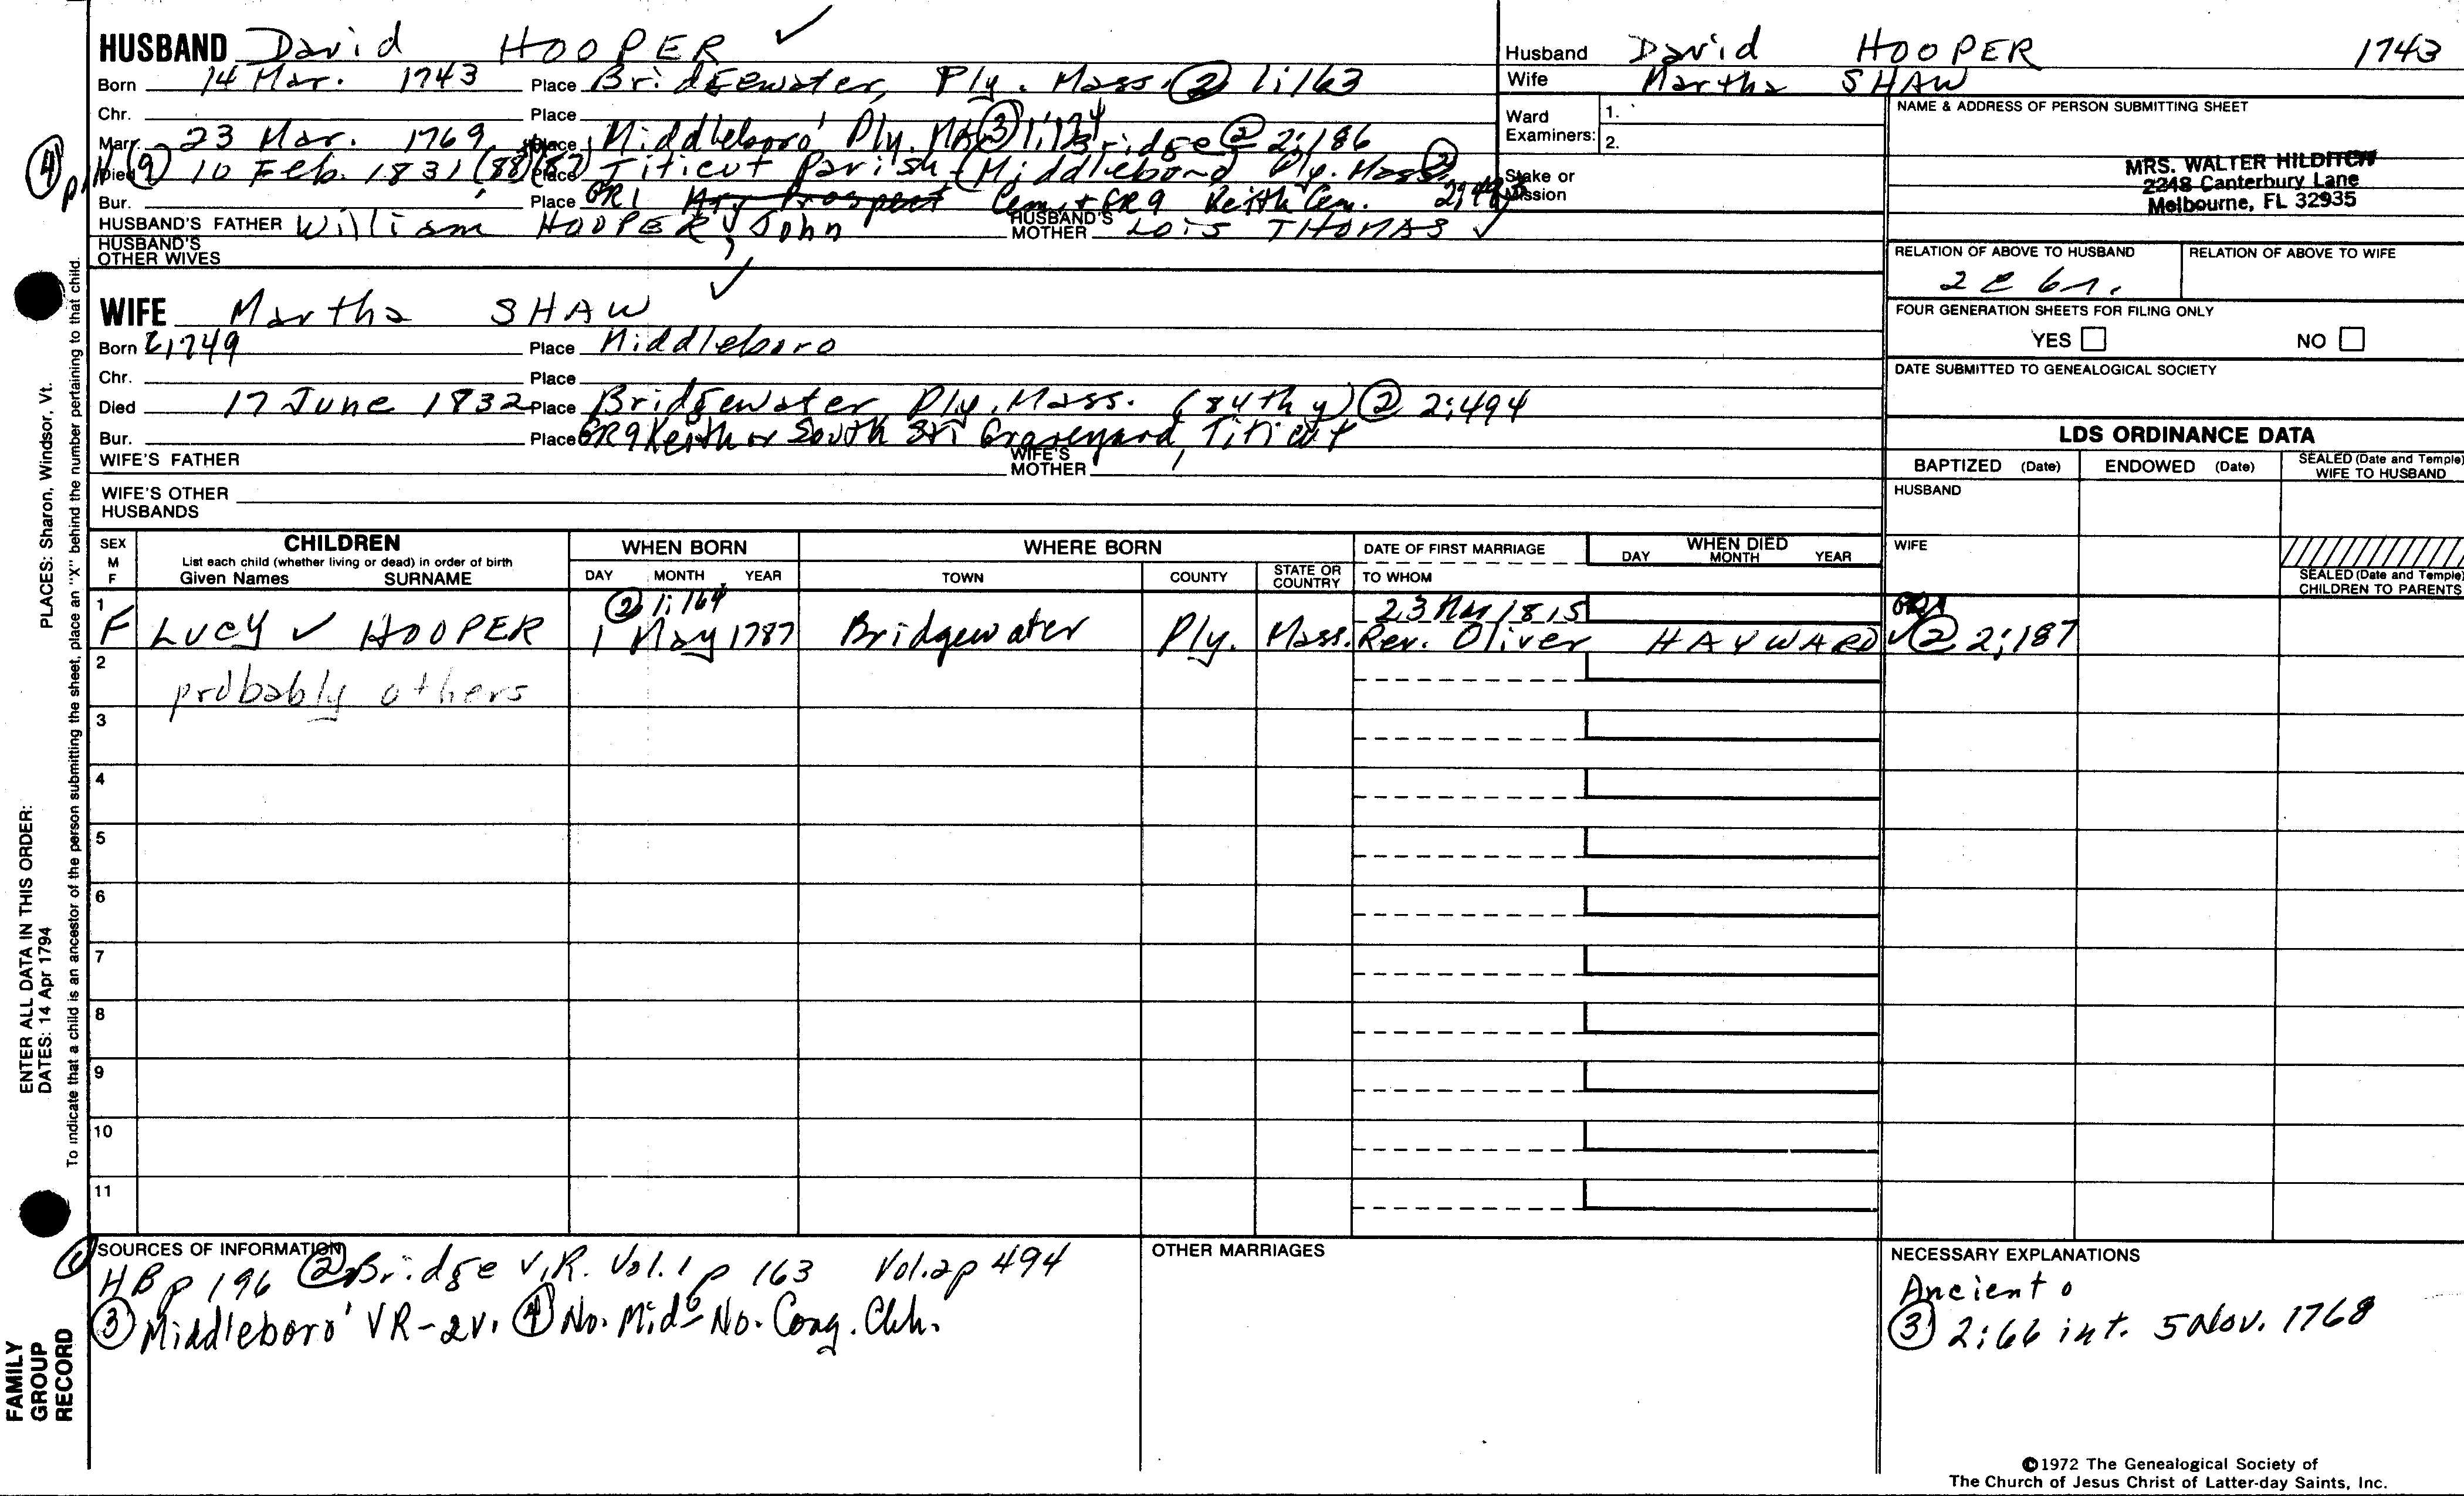 HUSBAND David HOOPER ✓
Born 14 Mar. 1743 Place Bridgewater, Ply. Mass. ② 1:163
Chr. Place
Marr. 23 Mar. 1769 Place Middleboro' Ply. MA ③ Bridge ② 2:186
④ Died (9) 10 Feb. 1831 (88) (87) Place Titicut Parish (Middleboro) Ply. Mass. ②
Bur. Place GR1 Cem. + GR9 Keith Cem. 2:493
HUSBAND'S FATHER William HOOPER, John HUSBAND'S MOTHER Lois THOMAS ✓
HUSBAND'S OTHER WIVES
WIFE Martha SHAW ✓
Born c1749 Place Middleboro
Chr. Place
Died 17 June 1832 Place Bridgewater Ply. Mass. (84th y) ② 2:494
Bur. Place GR9 Keith or South St. Graveyard, Titicut
WIFE'S FATHER WIFE'S MOTHER
WIFE'S OTHER HUSBANDS
Husband David HOOPER 1743
Wife Martha SHAW
Ward Examiners: 1.
2.
Stake or Mission
NAME & ADDRESS OF PERSON SUBMITTING SHEET
MRS. WALTER HILDITCH
2248 Canterbury Lane
Melbourne, FL 32935
RELATION OF ABOVE TO HUSBAND RELATION OF ABOVE TO WIFE
2 c 6 r.
FOUR GENERATION SHEETS FOR FILING ONLY
YES NO
DATE SUBMITTED TO GENEALOGICAL SOCIETY
LDS ORDINANCE DATA
BAPTIZED (Date) ENDOWED (Date) SEALED (Date and Temple) WIFE TO HUSBAND
HUSBAND
WIFE
SEALED (Date and Temple) CHILDREN TO PARENTS
SEX M F
CHILDREN
List each child (whether living or dead) in order of birth
Given Names SURNAME
WHEN BORN
DAY MONTH YEAR
WHERE BORN
TOWN COUNTY STATE OR COUNTRY
DATE OF FIRST MARRIAGE
TO WHOM
WHEN DIED
DAY MONTH YEAR
1 ② 1:164 23 1815
F Lucy ✓ HOOPER 1 May 1787 Bridgewater Ply. Mass. Rev. Oliver HAYWARD ✓ ② 2:187
2 probably others
3
4
5
6
7
8
9
10
11
SOURCES OF INFORMATION
① HB p 196 ② Bridge V.R. Vol.1 p 163 Vol.2 p 494
③ Middleboro' VR-2v. ④ No. Mid- No. Cong. Chh.
OTHER MARRIAGES
NECESSARY EXPLANATIONS
Ancient o
③ 2:66 int. 5 Nov. 1768
©1972 The Genealogical Society of
The Church of Jesus Christ of Latter-day Saints, Inc.
PLACES: Sharon, Windsor, Vt.
ENTER ALL DATA IN THIS ORDER:
DATES: 14 Apr 1794
To indicate that a child is an ancestor of the person submitting the sheet, place an "X" behind the number pertaining to that child.
FAMILY
GROUP
RECORD